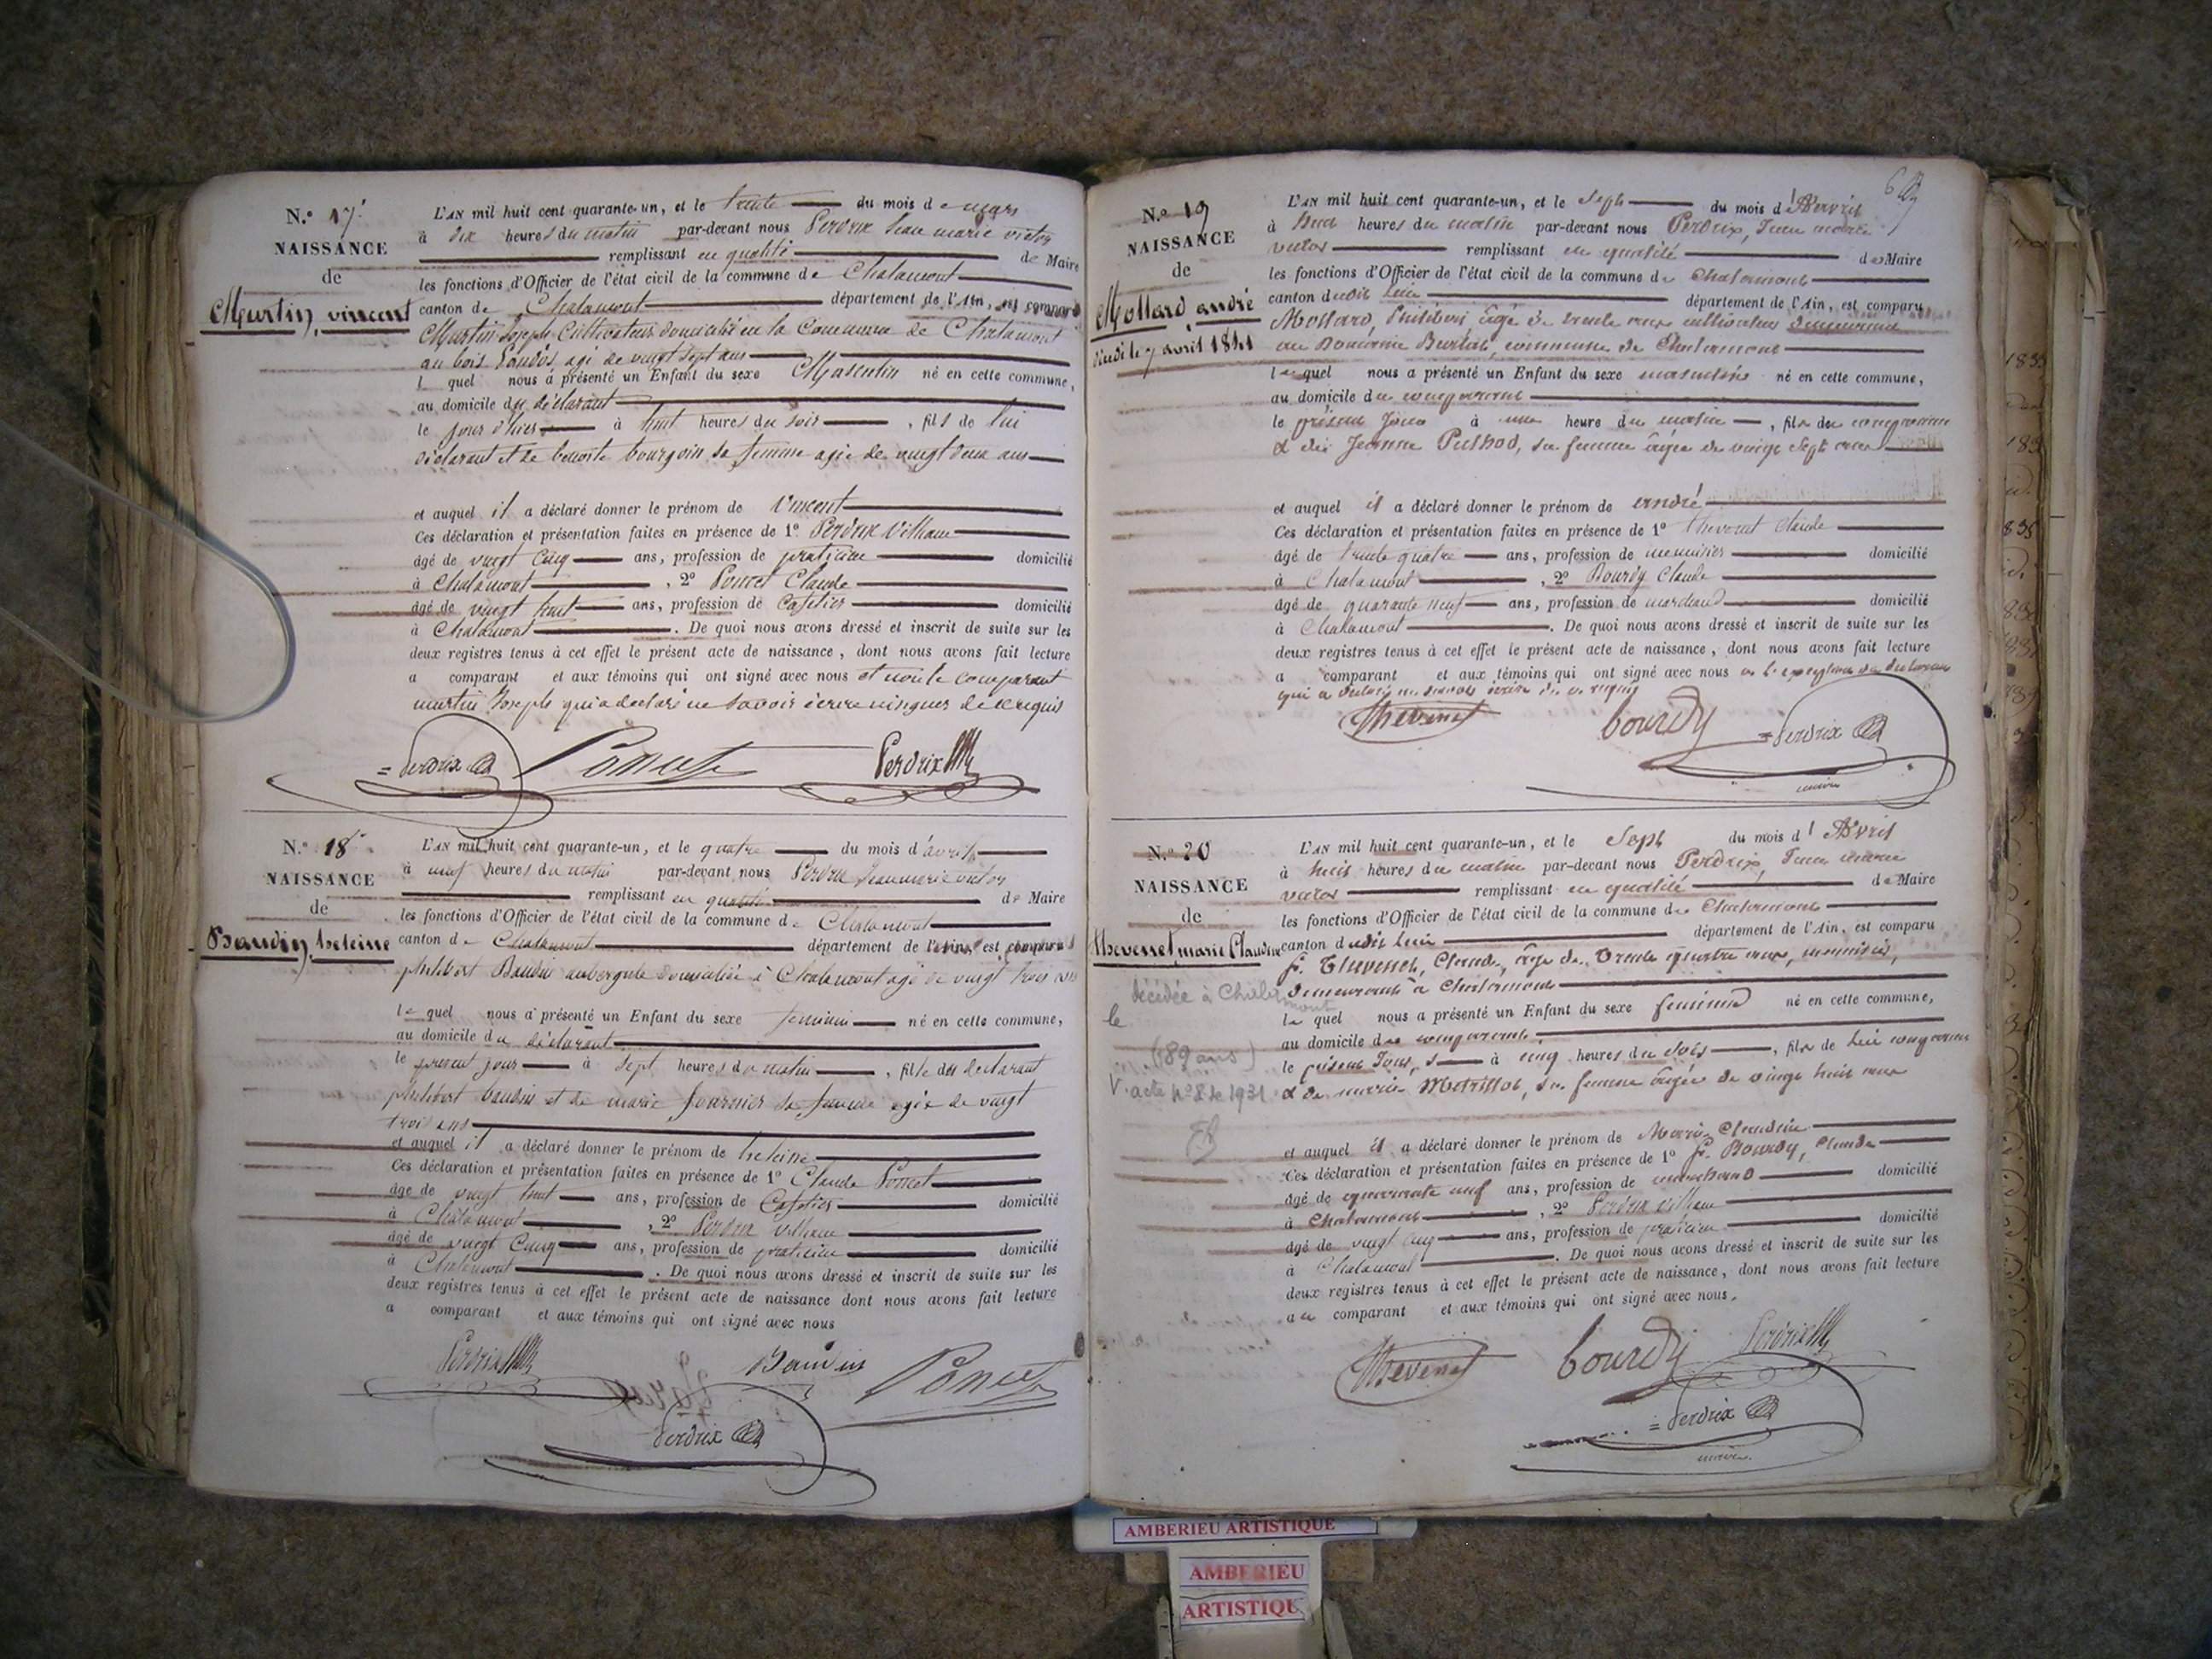 N.º 17
NAISSANCE
de
Martin, vincent
L'AN mil huit cent quarante-un, et le trente du mois de mars
à dix heures du matin par-devant nous Perdrix Jean marie victor
remplissant en qualité de Maire
les fonctions d'Officier de l'état civil de la commune de Chalamont
canton de Chalamont département de l'Ain, est comparu
Martin Joseph Cultivateur domicilié en la Commune de Chalamont
au bois agé de vingt sept ans
l quel nous a présenté un Enfant du sexe Masculin né en cette commune,
au domicile du déclarant
le jour d'hier à huit heures du soir, fils de lui
déclarant et de benoite bourgoin sa femme agée de vingt deux ans
et auquel il a déclaré donner le prénom de Vincent
Ces déclaration et présentation faites en présence de 1º Perdrix Villiam
âgé de vingt Cinq ans, profession de praticien domicilié
à Chalamont, 2º Poncet Claude
âgé de vingt huit ans, profession de Cafetier domicilié
à Chalamont. De quoi nous avons dressé et inscrit de suite sur les
deux registres tenus à cet effet le présent acte de naissance, dont nous avons fait lecture
a comparant et aux témoins qui ont signé avec nous et non le comparant
martin Joseph qui a declaré ne savoir écrire ni signer de ce requis
Perdrix Poncet Perdrix
N.º 18
NAISSANCE
de
Baudin, heleine
L'AN mil huit cent quarante-un, et le quatre du mois d'avril
à neuf heures du matin par-devant nous Perdrix Jean marie victor
remplissant en qualité de Maire
les fonctions d'Officier de l'état civil de la commune de Chalamont
canton de Chalamont département de l'Ain, est comparu
philibert Baudin aubergiste domicilié à Chalamont agé de vingt trois ans
le quel nous a présenté un Enfant du sexe feminin né en cette commune,
au domicile du déclarant
le present jour à sept heures du matin, fille du declarant
philibert baudin et de marie fournier sa femme agée de vingt
trois ans
et auquel il a déclaré donner le prénom de heleine
Ces déclaration et présentation faites en présence de 1º Claude Poncet
âgé de vingt huit ans, profession de Cafetier domicilié
à Chalamont, 2º Perdrix villiam
âgé de vingt Cinq ans, profession de praticien domicilié
à Chalamont. De quoi nous avons dressé et inscrit de suite sur les
deux registres tenus à cet effet le présent acte de naissance dont nous avons fait lecture
a comparant et aux témoins qui ont signé avec nous
Perdrix Baudin Poncet
Perdrix
N.º 19
NAISSANCE
de
Mollard, andré
le 7 avril 1841
L'AN mil huit cent quarante-un, et le Sept du mois d'Avril
à huit heures du matin par-devant nous Perdrix, Jean marie
victor remplissant en qualité de Maire
les fonctions d'Officier de l'état civil de la commune de Chalamont
canton dudit lieu département de l'Ain, est comparu
Mollard, Philibert âgé de trente ans cultivateur demeurant
au Domaine commune de Chalamont
le quel nous a présenté un Enfant du sexe masculin né en cette commune,
au domicile du comparant
le présent Jour à une heure du matin, fils du comparant
& de Jeanne Puthod, sa femme âgée de vingt Sept ans
et auquel il a déclaré donner le prénom de andré
Ces déclaration et présentation faites en présence de 1º thevenet claude
âgé de trente quatre ans, profession de menuisier domicilié
à Chalamont, 2º Bourdy Claude
âgé de quarante neuf ans, profession de marchand domicilié
à Chalamont. De quoi nous avons dressé et inscrit de suite sur les
deux registres tenus à cet effet le présent acte de naissance, dont nous avons fait lecture
a comparant et aux témoins qui ont signé avec nous à l'exception du déclarant
qui a déclaré ne savoir écrire
Thevenet bourdy Perdrix
maire
N.º 20
NAISSANCE
de
thevenet, marie Claudine
décédée à Chalamont
le
(89 ans)
V. acte nº 8 de 1931
L'AN mil huit cent quarante-un, et le Sept du mois d'Avril
à huit heures du matin par-devant nous Perdrix, Jean marie
victor remplissant en qualité de Maire
les fonctions d'Officier de l'état civil de la commune de Chalamont
canton dudit lieu département de l'Ain, est comparu
Sr. Thevenet, Claude, âgé de trente quatre ans, menuisier,
demeurant à Chalamont
le quel nous a présenté un Enfant du sexe feminin né en cette commune,
au domicile du comparant
le présent Jour, à cinq heures du soir, fille de lui comparant
& de marie Morillot, sa femme âgée de vingt huit ans
et auquel il a déclaré donner le prénom de Marie Claudine
Ces déclaration et présentation faites en présence de 1º Sr. Bourdy, Claude
âgé de quarante neuf ans, profession de marchand domicilié
à Chalamont, 2º Perdrix villiam
âgé de vingt cinq ans, profession de praticien domicilié
à Chalamont. De quoi nous avons dressé et inscrit de suite sur les
deux registres tenus à cet effet le présent acte de naissance, dont nous avons fait lecture
au comparant et aux témoins qui ont signé avec nous.
Thevenet bourdy Perdrix
Perdrix
maire
AMBERIEU ARTISTIQUE
AMBERIEU
ARTISTIQUE